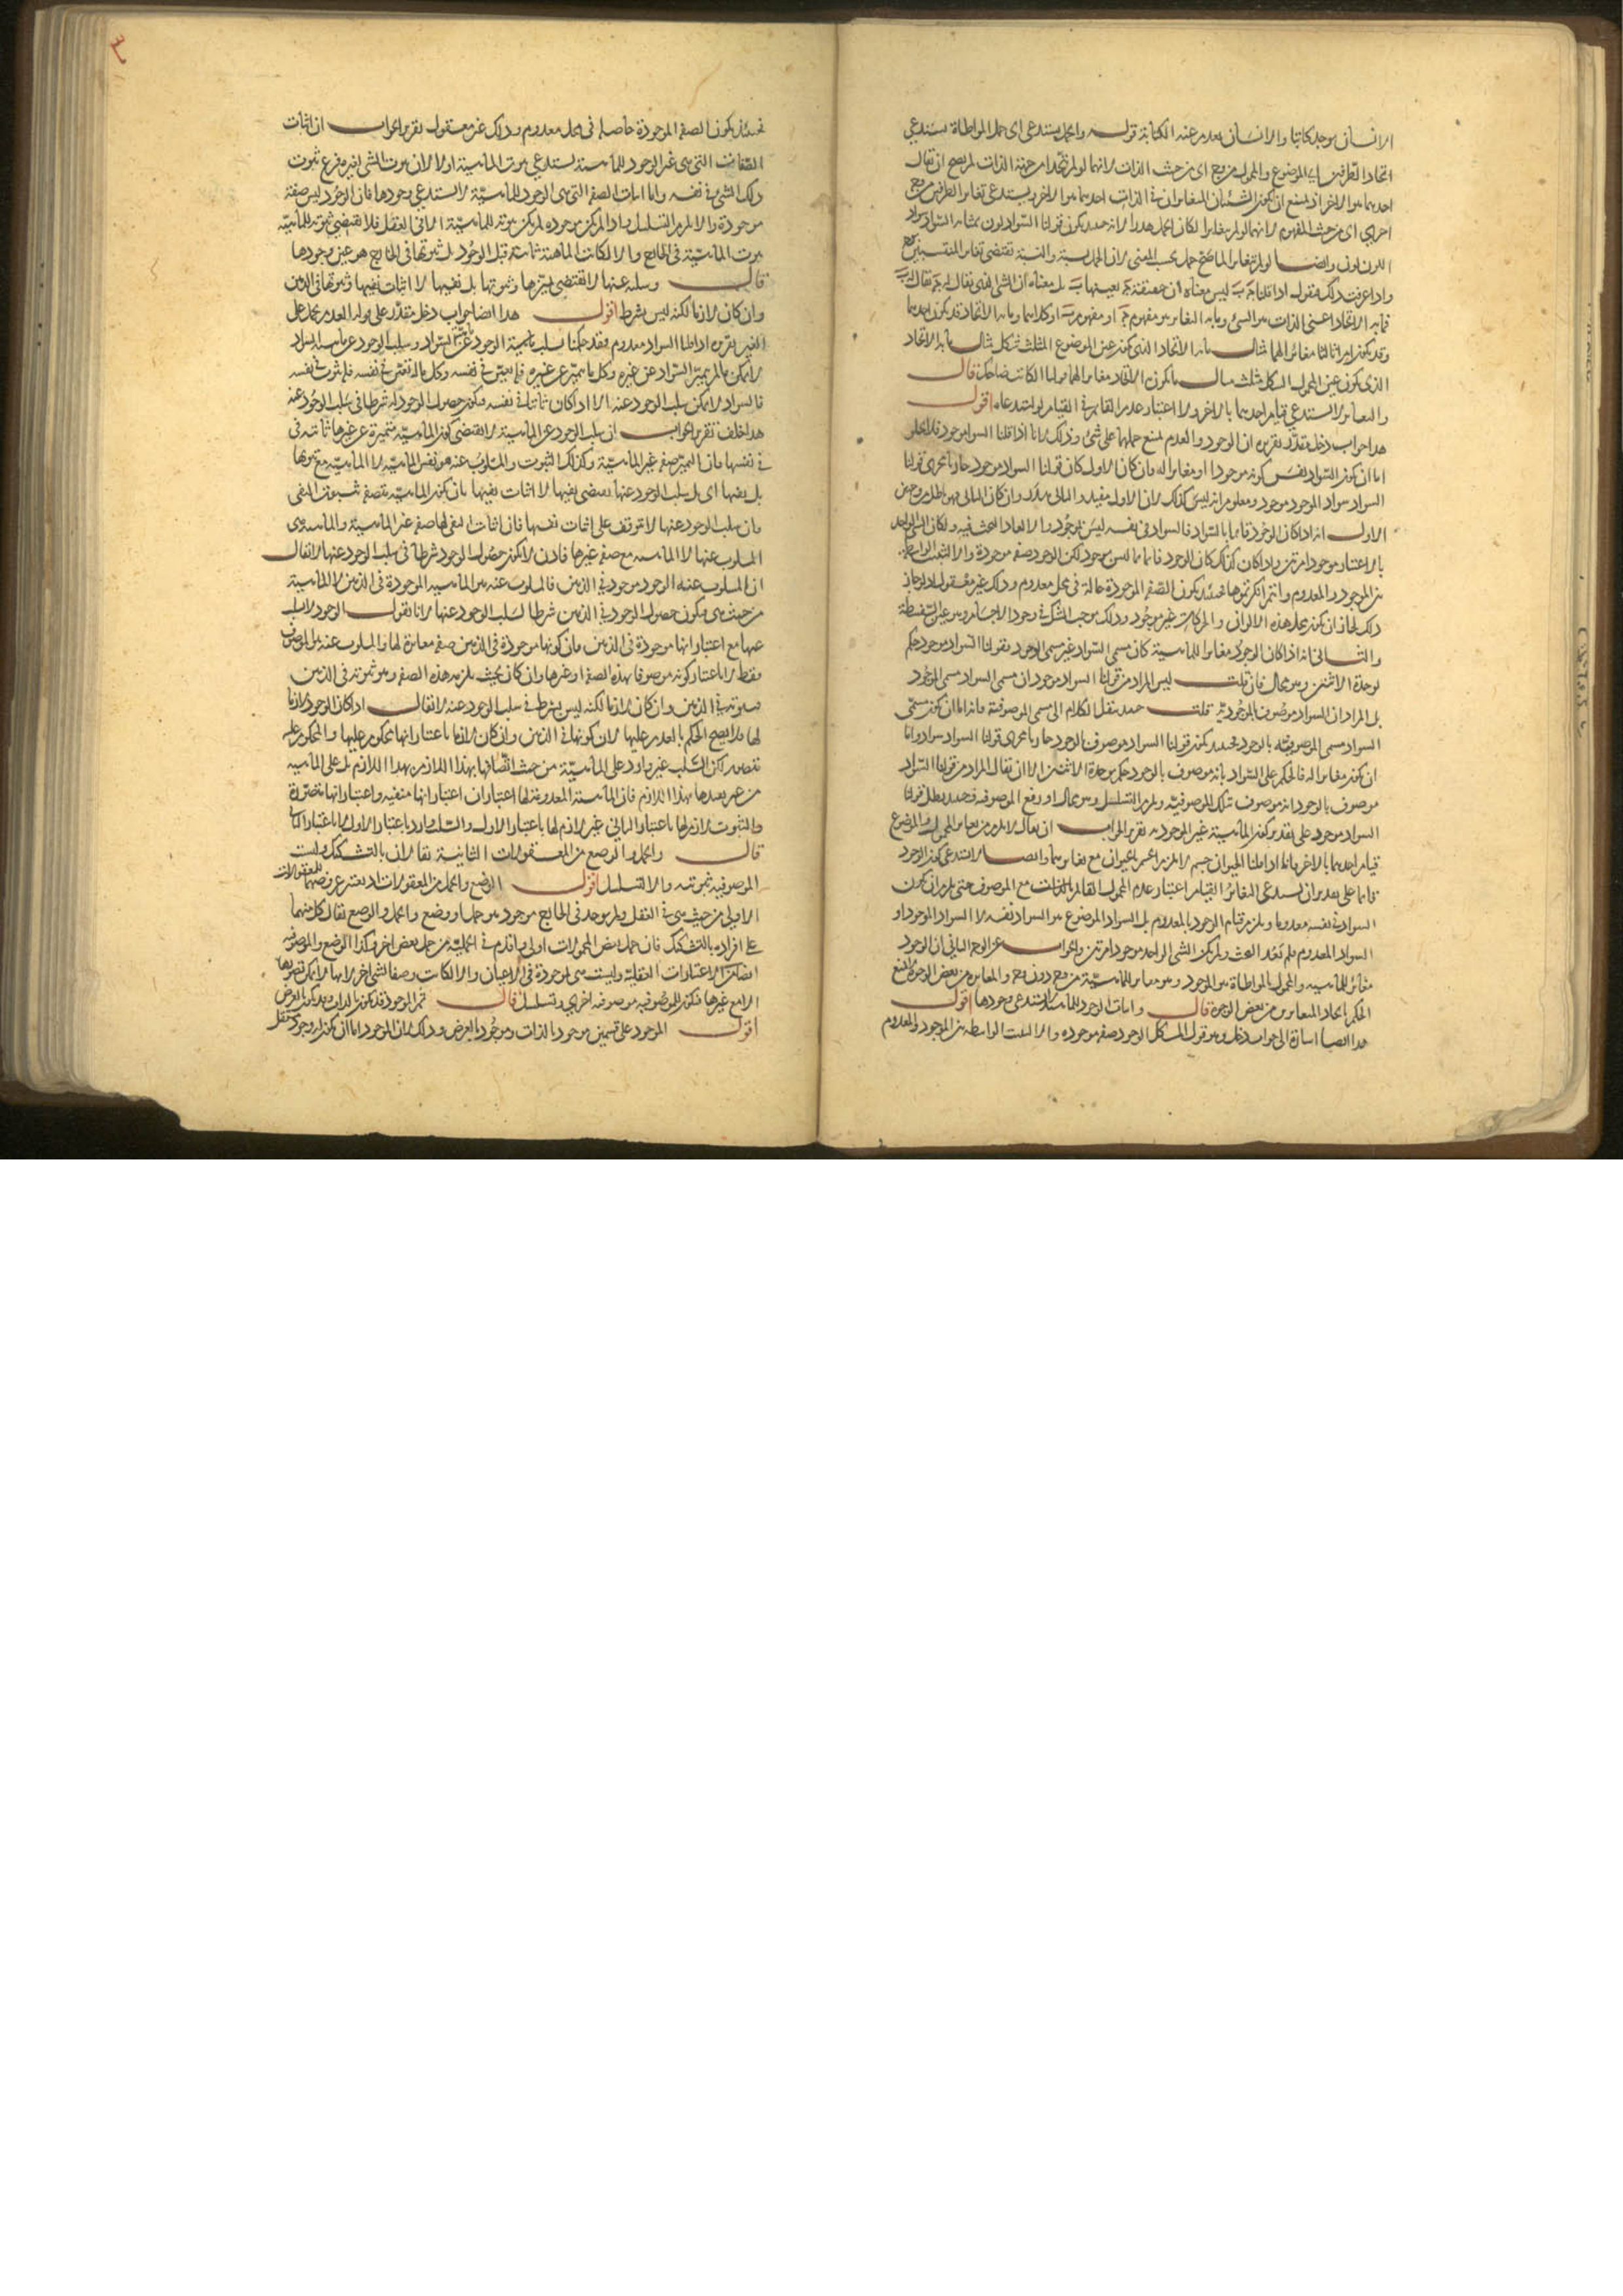 الانسان يوجد كاتبا والانسان يعدم عنه الكتابة قوله والحمل يستدعى اى حمل المواطاة يستدعى
اتحاد الطرفين اى الموضوع والمحمول من وجه اى من حيث الذات لانهما لو لم يتحدا من جهة الذات لم يصح ان يقال
احدهما هو الاخر اذ يمتنع ان يكون الشيئان المتغايران فى الذات احدهما هو الاخر ويستدعى تغاير الطرفين من وجه
اخر اى من حيث المفهوم لانهما لو لم يتغايرا لكان الحمل هدرا لانه حينئذ يكون قولنا السواد لون بمثابة السواد سواد
اللون لون وايضا لو لم يتغايرا لما صح حمل بحسب المعنى لان الحمل نسبة والنسبة تقتضى تغاير المنتسبين
واذا عرفت ذلك فنقول اذا قلنا ج ب ليس معناه ان حقيقة ج بعينها ب بل معناه ان الشئ الذى يقال له ج يقال له ب
فما به الاتحاد اعنى الذات هو الشئ وما به التغاير هو مفهوم ج او مفهوم ب او كلاهما وما به الاتحاد قد يكون احدهما
وقد يكون امرا ثالثا مغايرا لهما مثال ما به الاتحاد الذى يكون عين الموضوع المثلث شكل مثال ما به الاتحاد
الذى يكون عين المحمول الشكل مثلث مثال ما يكون الاتحاد مغايرا لهما قولنا الكاتب ضاحك قال
والتغاير لا يستدعى قيام احدهما بالاخر ولا اعتبار عدم القائم فى القيام لو استدعاه اقول
هذا جواب دخل مقدر تقريره ان الوجود والعدم يمتنع حملهما على شئ وذلك لانا اذا قلنا السواد موجود فلا يخلو
اما ان يكون السواد نفس كونه موجودا او مغايرا له فان كان الاول كان قولنا السواد موجود جاريا مجرى قولنا
السواد سواد الموجود موجود ومعلوم انه ليس كذلك لان الاول مفيد والثانى هدر وان كان الثانى فهو باطل من وجهين
الاول انه اذا كان الوجود قائما بالسواد فالسواد فى نفسه ليس بموجود والا لعاد البحث فيه ولكان الشئ الواحد
بالاعتبار موجودا مرتين واذا كان كذلك كان الوجود قائما بما ليس بموجود لكن الوجود صفة موجودة والا لثبتت الواسطة
بين الموجود والمعدوم وانتم انكرتموها فحينئذ يكون الصفة الموجودة حالة فى محل معدوم وذلك غير معقول اذ لو جاز
ذلك لجاز ان يكون محل هذه الالوان والحركات غير موجود وذلك يوجب الشك فى وجود الاجسام وهو عين السفسطة
والثانى انه اذا كان الوجود مغايرا للماهية كان مسمى السواد غير مسمى الوجود فقولنا السواد موجود حكم
بوحدة الاثنين وهو محال فان قلت ليس المراد من قولنا السواد موجود ان مسمى السواد مسمى الوجود
بل المراد ان السواد موصوف بالموجودية قلت حينئذ ننقل الكلام الى مسمى الموصوفية فانه اما ان يكون مسمى
السواد مسمى الموصوفية بالوجود فحينئذ يكون قولنا السواد موصوف بالوجود جاريا مجرى قولنا السواد سواد واما
ان يكون مغايرا له فالحكم على السواد بانه موصوف بالوجود حكم بوحدة الاثنين الا ان يقال المراد من قولنا السواد
موصوف بالوجود انه موصوف بتلك الموصوفية ويلزم التسلسل وهو محال او رفع الموصوفية وحينئذ يبطل قولنا
السواد موجود على تقدير كون الماهية غير الوجود تقرير الجواب ان يقال لا يلزم من تغاير المحمول والموضوع
قيام احدهما بالاخر فانا اذا قلنا الحيوان جسم لا يلزم قيام الجسم بالحيوان مع تغايرهما وايضا لا يستدعى كون الوجود
قائما على تقدير ان يستدعى التغاير القيام اعتبار عدم المحمول القائم بالذات مع الموصوف حتى يلزم ان يكون
السواد فى نفسه معدوما ويلزم قيام الوجود بالمعدوم بل السواد الموضوع هو السواد نفسه لا السواد الموجود او
السواد المعدوم فلم يعد البحث ولم يكن الشئ الواحد موجودا مرتين والجواب عن الوجه الثانى ان الوجود
مغاير للماهية والمحمول بالمواطاة هو الموجود وهو مغاير للماهية من وجه دون وجه والتغاير من بعض الوجوه لا يمنع
الحكم باتحاد المتغايرين من بعض الوجوه قال واثبات الوجود للماهية لا يستدعى وجودها اقول
هذا ايضا اشارة الى جواب دخل وهو قول المشكك الوجود صفة موجودة والا لثبتت الواسطة بين الموجود والمعدوم
٣
فحينئذ يكون الصفة الموجودة حاصلة فى محل معدوم وذلك غير معقول تقرير الجواب ان اثبات
الصفات التى هى غير الوجود للماهية يستدعى ثبوت الماهية اولا لان ثبوت الشئ لغيره فرع ثبوت
ذلك الشئ فى نفسه واما اثبات الصفة التى هى الوجود للماهية لا يستدعى وجودها فان الوجود ليس صفة
موجودة والا لزم التسلسل واذا لم يكن موجودة لم يكن ثبوته للماهية الا فى العقل فلا يقتضى ثبوته للماهية
ثبوت الماهية فى الخارج والا لكانت الماهية ثابتة قبل الوجود بل ثبوتها فى الخارج هو عين وجودها
قال وسلبه عنها لا يقتضى تميزها وثبوتها بل نفيها لا اثبات نفيها وثبوتها فى الذهن
وان كان لازما لكنه ليس بشرط اقول هذا ايضا جواب دخل مقدر على قوله العدم يحمل على
الغير تقريره اذا قلنا السواد معدوم فقد حكمنا بسلب ماهية الوجود عن السواد وسلب الوجود عن ماهية السواد
لا يمكن ما لم يتميز السواد عن غيره وكل ما يتميز عن غيره فله تعين فى نفسه وكل ما له تعين فى نفسه فله ثبوت فى نفسه
فالسواد لا يمكن سلب الوجود عنه الا اذا كان ثابتا فى نفسه فيكون حصول الوجود له شرطا فى سلب الوجود عنه
هذا خلف تقرير الجواب ان سلب الوجود عن الماهية لا يقتضى كون الماهية متميزة عن غيرها ثابتة فى
فى نفسها فان التميز صفة غير الماهية وكذلك الثبوت والمسلوب عنه هو نفس الماهية لا الماهية مع ثبوتها
بل نفيها اى بل سلب الوجود عنها يقتضى نفيها لا اثبات نفيها بان يكون الماهية متصفة بثبوت النفى
فان سلب الوجود عنها لا يتوقف على اثبات نفيها فان اثبات النفى لها صفة غير الماهية والماهية هى
المسلوب عنها لا الماهية مع صفة غيرها فاذن لا يكون حصول الوجود شرطا فى سلب الوجود عنها لا يقال
ان المسلوب عنه الوجود موجود فى الذهن فالمسلوب عنه هو الماهية الموجودة فى الذهن لا الماهية
من حيث هى فيكون حصول الوجود فى الذهن شرطا لسلب الوجود عنها لانا نقول الوجود لا يسلب
عنها مع اعتبار انها موجودة فى الذهن فان كونها موجودة فى الذهن صفة مغايرة لها والمسلوب عنه هو الموصوف
فقط لا باعتبار كونه موصوفا بهذه الصفة او غيرها وان كان بحيث يلزمه هذه الصفة وهو ثبوته فى الذهن
فثبوته فى الذهن وان كان لازما لكنه ليس بشرط فى سلب الوجود عنه لا يقال اذا كان الوجود لازما
لها فلا يصح الحكم بالعدم عليها لان كونها فى الذهن وان كان لازما باعتبار انها محكوم عليها والمحكوم عليه
متصور لكن السلب غير وارد على الماهية من حيث اتصافها بهذا اللازم بل على الماهية
من غير تقييدها بهذا اللازم فان الماهية المعدومة لها اعتباران اعتبار انها منفية واعتبار انها متصورة
والثبوت لازم لها باعتبار الثانى غير لازم لها باعتبار الاول والسلب وارد باعتبار الاول لا باعتبار الثانى
قال والحمل والوضع من المعقولات الثانية يقالان بالتشكيك وليست
الموصوفية ثبوتية والا لتسلسل اقول الوضع والحمل من المعقولات اذ يعتبر عروضهما للمعقولات
الاولى من حيث هى فى العقل ولم يوجد فى الخارج موجود هو حمل او وضع والحمل والوضع يقال كل منهما
على افراده بالتشكيك فان حمل بعض المحمولات اولى واقدم فى الحملية من حمل بعض اخر وكذا الوضع والموصوفية
ايضا من الاعتبارات العقلية وليست هى موجودة فى الاعيان والا لكانت وصفا لشئ اخر لانها لا يمكن تصورها
الا مع غيرها فيكون للموصوفية موصوفية اخرى ويتسلسل قال ثم الموجود قد يكون بالذات وقد يكون بالعرض
اقول الموجود على قسمين موجود بالذات وموجود بالعرض وذلك لان الموجود اما ان يكون له وجود مستقل